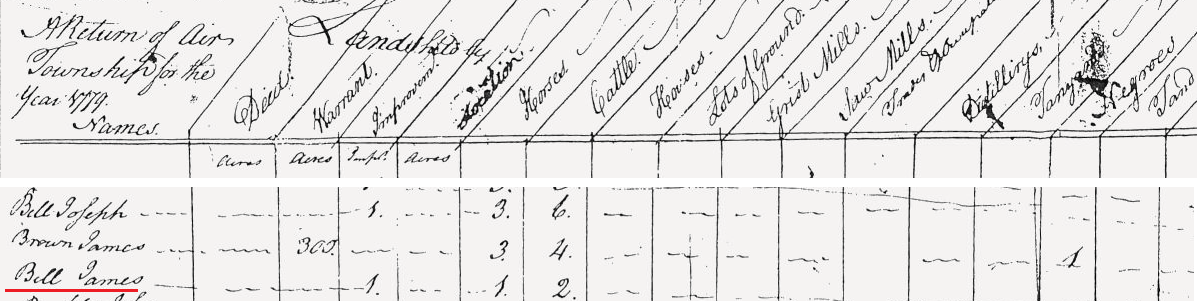 A Return of Air
Township for the
Year 1779.
Names.
Lands held by
Deed.
Warrant.
Improvem.t
Location
Horses.
Cattle.
Houses.
Lots of Ground.
Grist Mills.
Saw Mills.
Trades
Distillerys.
Tanyards
Negroes
Acres Acres Imp.t Acres
Bell Joseph 1. 3. 6.
Brown James 300. 3 4. 1
Bell James 1. 1. 2.